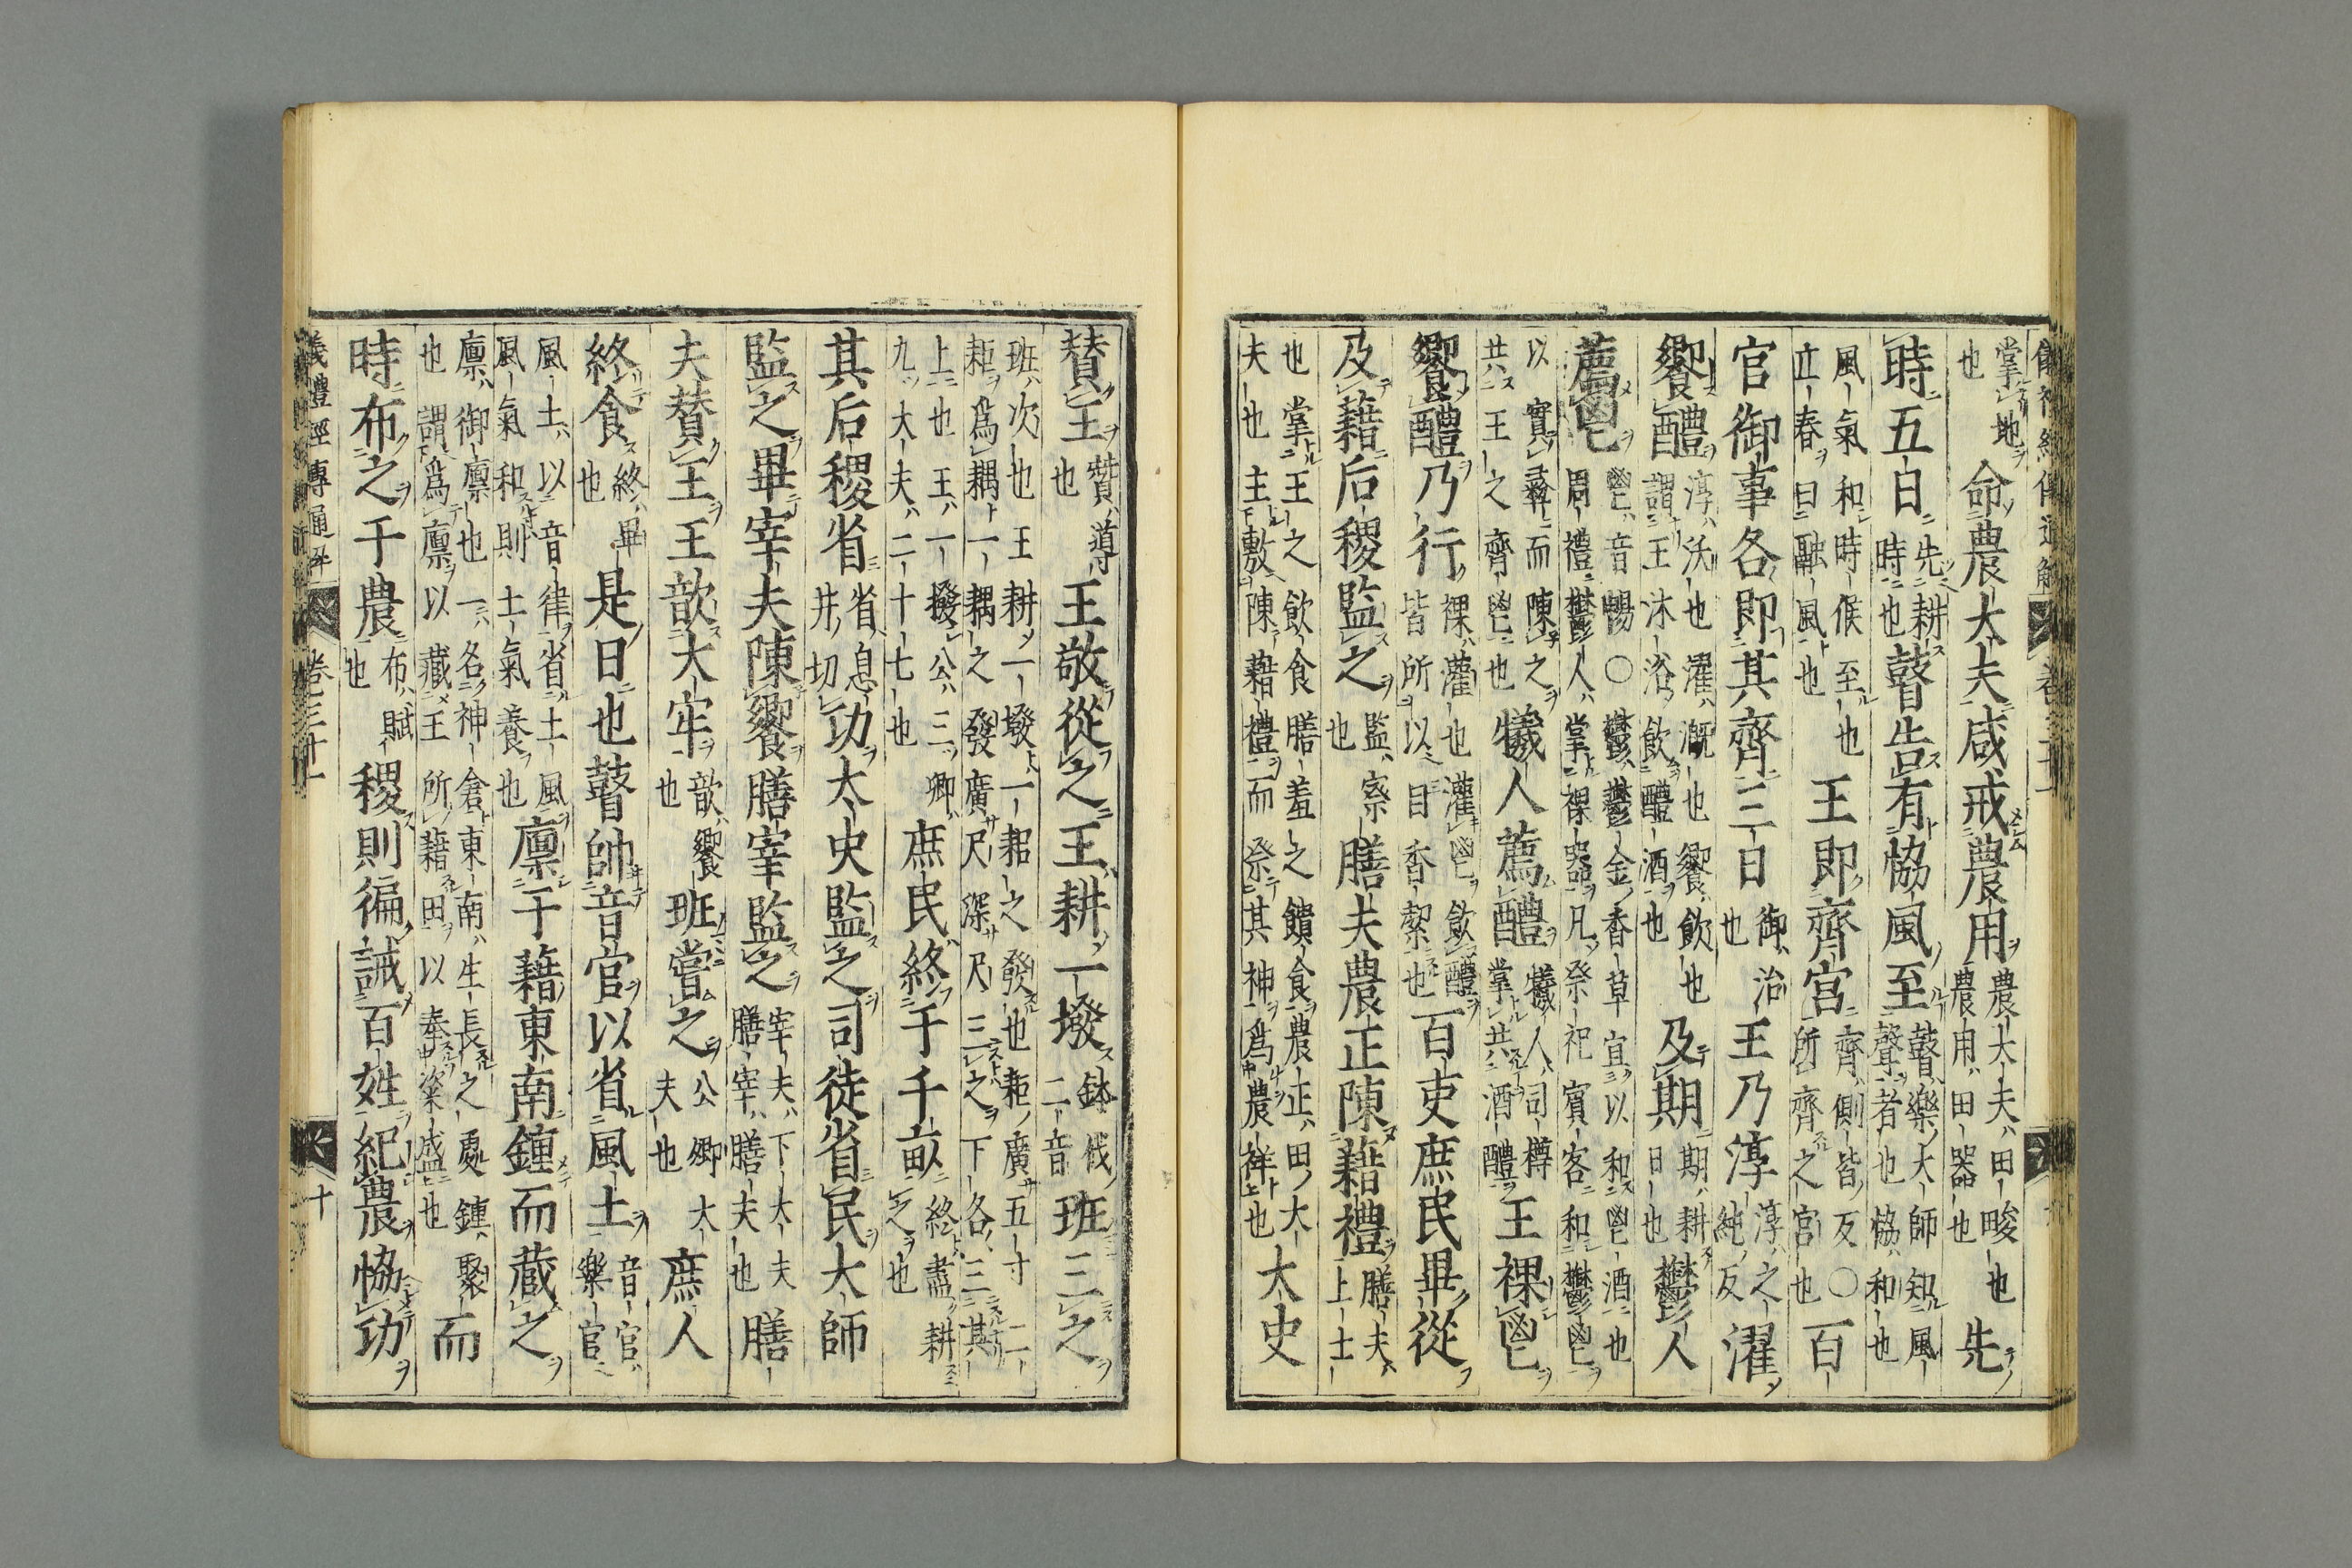 掌地也命農大夫咸戒農用農大夫田畯也農用田器也先
時五日先耕時也瞽告有協風至瞽樂大師知風聲者也協和也
風氣和時候至也立春曰融風也王即齊宮齊側皆反○所齊之宮也百
官御事各即其齊三日御治也王乃淳淳之純反濯
饗醴淳沃也濯漑也饗飲也謂王沐浴飲醴酒也及期期耕日也鬱人
薦鬯鬯音暢○鬱鬱金香草宜以和鬯酒也周禮鬱人掌祼器凡祭祀賓客和鬱鬯
以實彝而陳之共王之齊鬯也犧人薦醴犧人司樽掌共酒醴王祼鬯
饗醴乃行祼灌也灌鬯飲醴皆所以自香絜也百吏庶民畢從
及藉后稷監之監察也膳夫農正陳藉禮膳夫上士
也掌王之飲食膳羞之饋食農正田大夫也主敷陳藉禮而祭其神爲農祥也太史
贊王贊導也王敬從之王耕一墢鉢伐二音班三之
班次也王耕一墢一耜之發也耜廣五寸二耜爲耦一耦之發廣尺深尺三之下各三其
上也王一墢公三卿九大夫二十七也庶民終于千畝終盡耕之也
其后稷省省息井切功太史監之司徒省民大師
監之畢宰夫陳饗膳宰監之宰夫下大夫膳宰膳夫也膳
夫贊王王歆大牢歆饗也班嘗之公卿大夫也庶人
終食終畢也是日也瞽帥音官以省風土音官樂官
風土以音律省土風風氣和則土氣養也廩于藉東南鍾而藏之
廩御廩也一名神倉東南生長之處鍾聚也謂爲廩以藏王所藉田以奉粢盛也而
時布之于農布賦也稷則徧誡百姓紀農協功
儀禮經傳通解 卷三十一 十